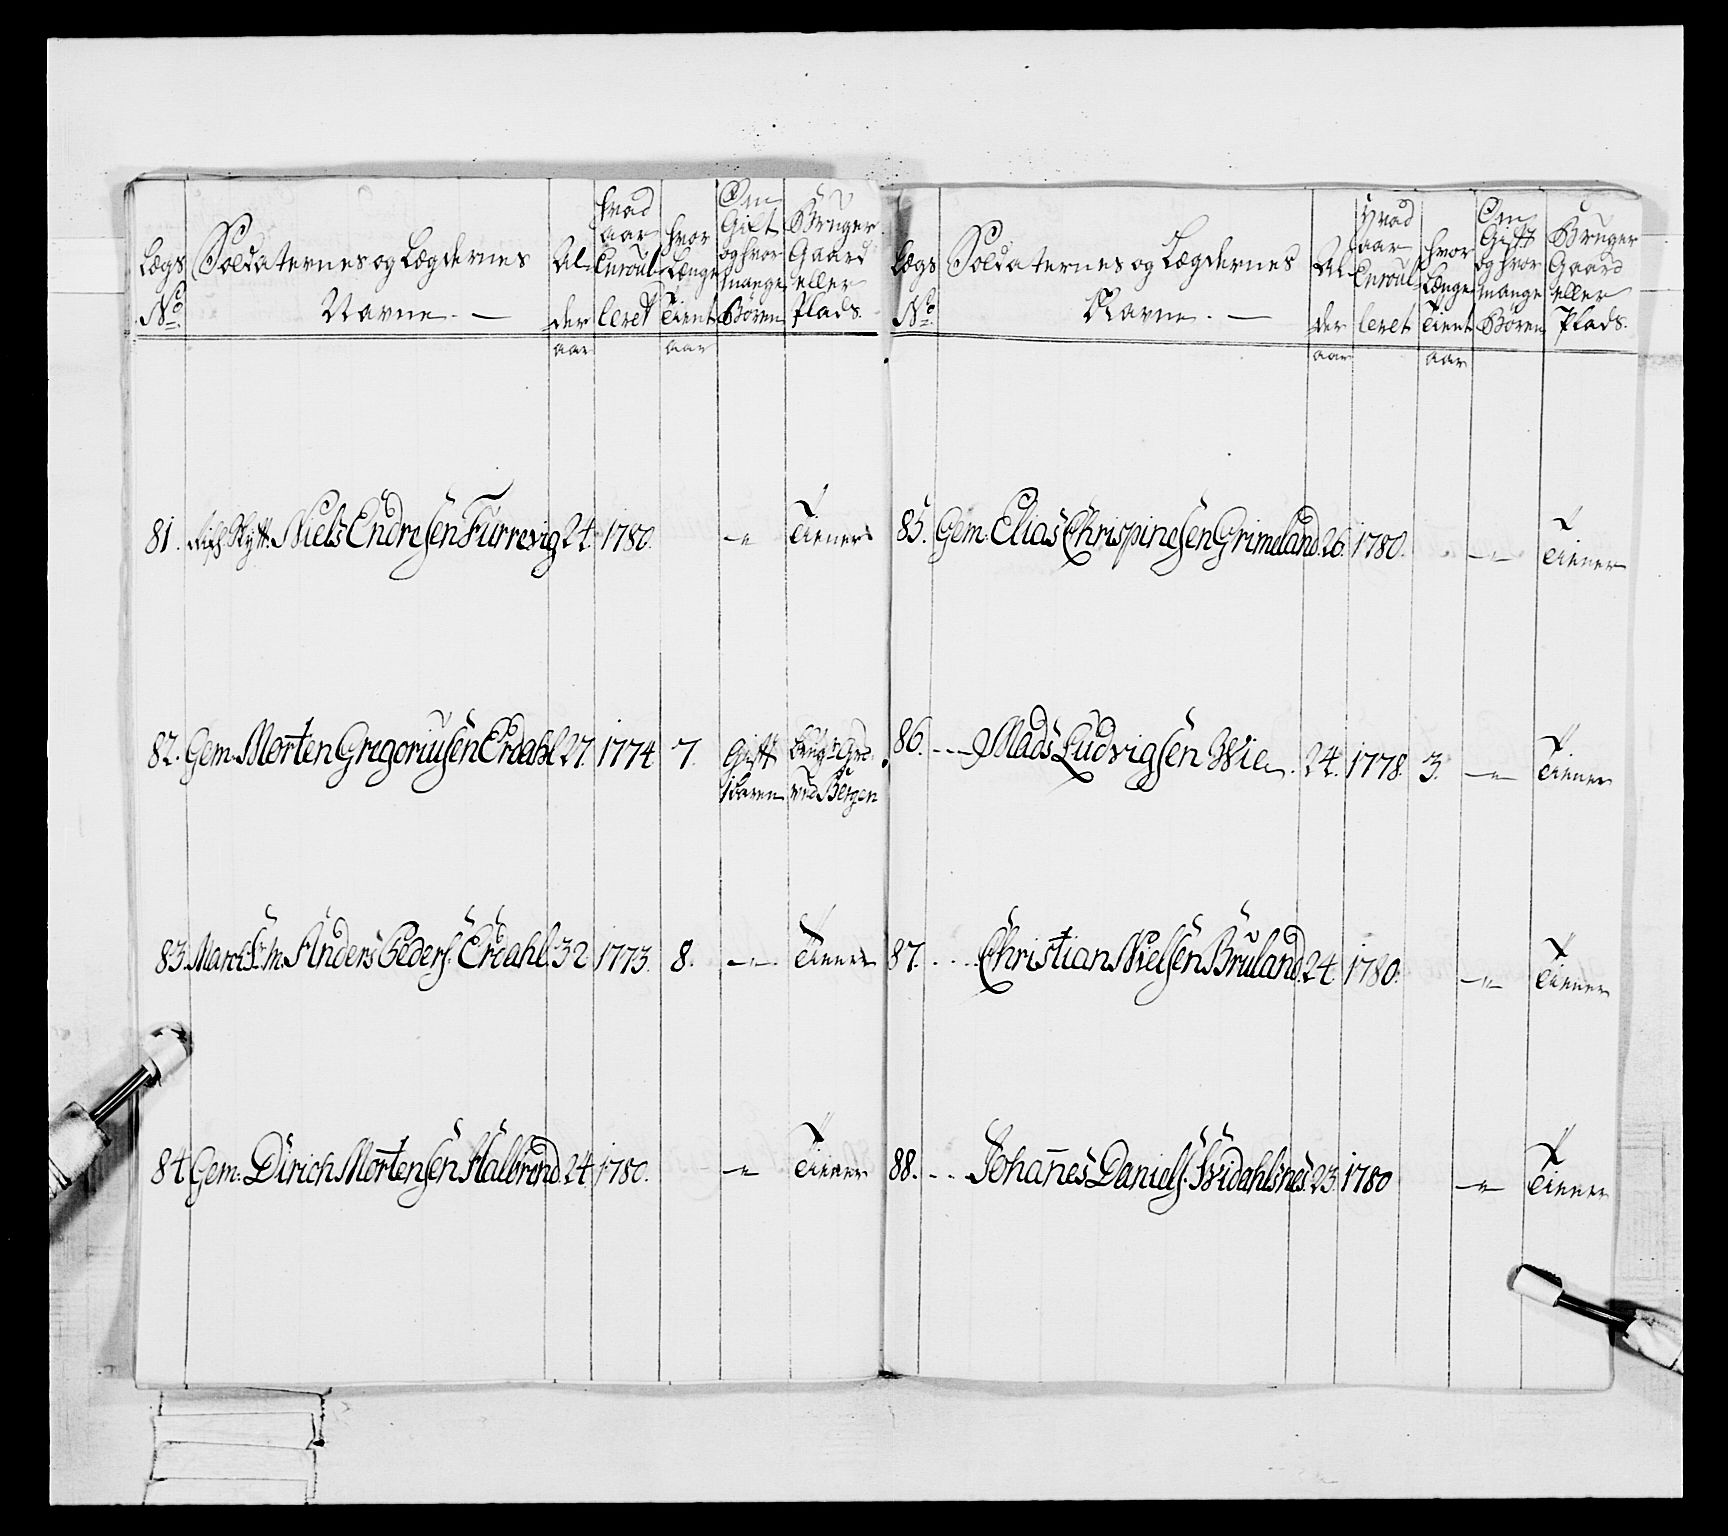 Lægs No. | Soldaternes og Lægdernes Navne. — | Alder | Hvad aar Enroulleret | Hvor Længe Tient | Om Gift og hvor mange Børen | Bruger Gaard eller Plads.
aar | aar
81. Niels Endresen Furrevig 24. 1780. — " Tiener
82. Gem. Morten Gregoriusen Erdahl 27. 1774 7. Gift
1 Baren ved Bergen
83. Anders Peders. Erdahl. 32 1773. 8. — " — Tiener
84. Gem: Dirich Mortensen Halbrend. 24. 1780. — " Tiener
Lægs No. | Soldaternes og Lægdernes Navne. — | Alder | Hvad aar Enroulleret | Hvor Længe Tient | Om Gift og hvor mange Børen | Bruger Gaard eller Plads.
aar | aar
85. Gem. Elias Chrispinesen Grimeland. 26. 1780. — " — Tiener
86. - - - Mads Ludvigsen Wie. 24. 1778. 3. — " — Tiener
87. - - - Christian Nielsen Bruland. 24. 1780. — " — Tiener
88. - - Johannes Daniels. Hvidahlsnes. 23. 1780 — " — Tiener